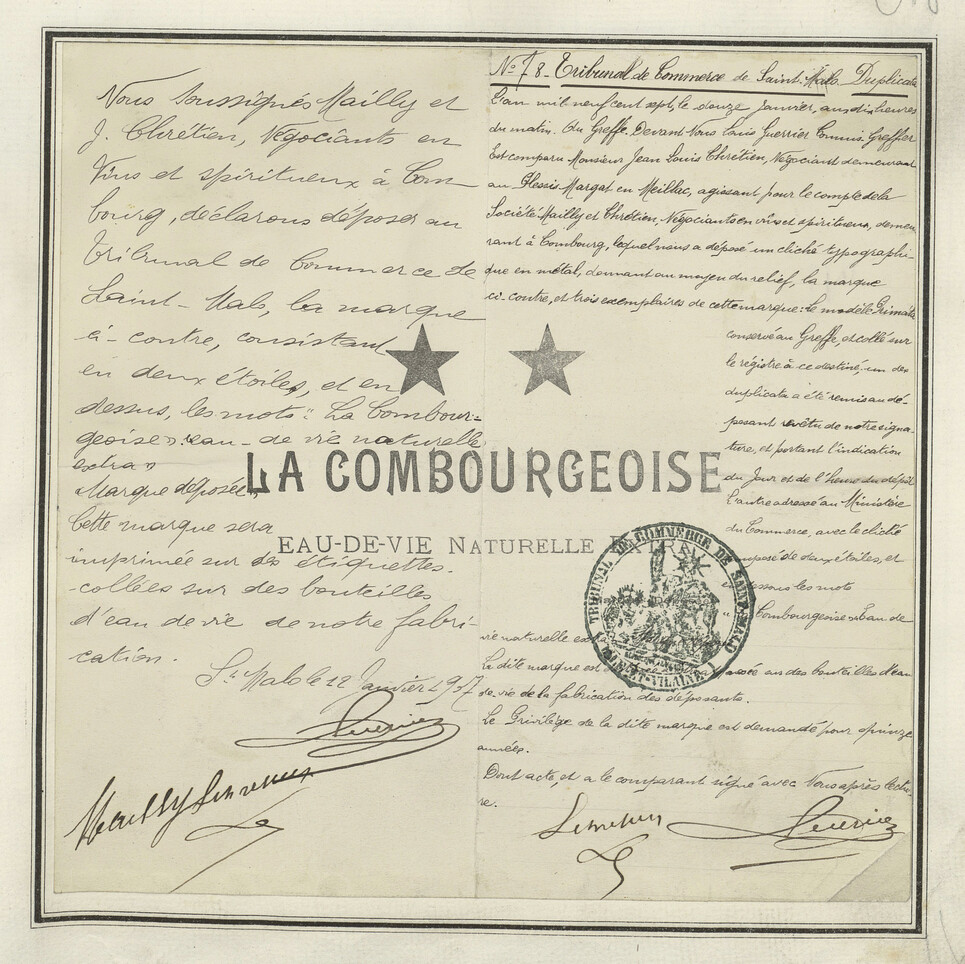 Nous soussignés Mailly et
J. Chrétien, Négociants en
Vins et spiritueux à Com-
bourg, déclarons déposer au
Tribunal de Commerce de
Saint-Malo, la marque
ci-contre, consistant
en deux étoiles, et en
dessus, les mots "La Combour-
geoise" eau-de vie naturelle
extra"
Marque déposée"
Cette marque sera
imprimée sur des étiquettes
collées sur des bouteilles
d'eau de vie de notre fabri-
cation.
St Malo le 12 Janvier 1907
Mailly Chretien
Guerrier
LA COMBOURGEOISE
EAU-DE-VIE NATURELLE EXTRA
No 78 - Tribunal de Commerce de Saint-Malo Duplicata
L'an mil neuf cent sept, le douze Janvier, aux dix heures
du matin. Au Greffe. Devant Nous Louis Guerrier Commis-Greffier
Est comparu Monsieur Jean Louis Chrétien, Négociant demeurant
au Plessis Margat en Meillac, agissant pour le compte de la
Société Mailly et Chrétien, Négociants en vins et spiritueux, demeu
rant à Combourg, lequel nous a déposé un cliché typographi-
que en métal, donnant au moyen du relief, la marque
ci-contre, et trois exemplaires de cette marque: le modèle Primata
conservé au Greffe, est collé sur
le régistre à ce destiné, un des
duplicata a été remis au dé-
posant revêtu de notre signa-
ture, et portant l'indication
du Jour et de l'heure du dépôt
L'autre adressé au Ministère
du Commerce, avec le cliché
composé de deux étoiles, et
dessous les mots
" Combourgeoise" Eau de
vie naturelle ext
La dite marque est posée sur des bouteilles d'eau
de vie de la fabrication des déposants.
Le Privilège de la dite marque est demandé pour quinze
années.
Dont acte, et a le comparant signé avec Nous après lectu
re.
Chretien Guerrier
TRIBUNAL DE COMMERCE DE SAINT-MALO
ILLE-ET-VILAINE